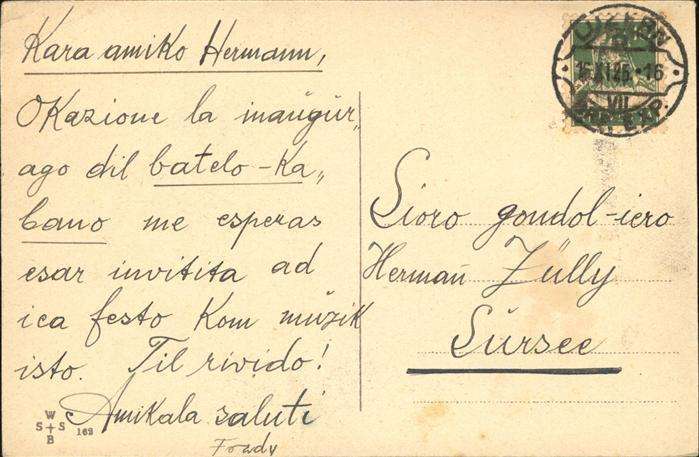 Kara amiko Hermann,
Okazione la inaugur„
ago dil batelo-ka„
bano me esperas
esar invitita ad
ica festo kom muzik
isto. Til rivido!
Amikala saluti
Sioro gondol-iero
Herman̄ Zülly
Sursee
LUZERN
VII
EXP.
W
S S
B
162